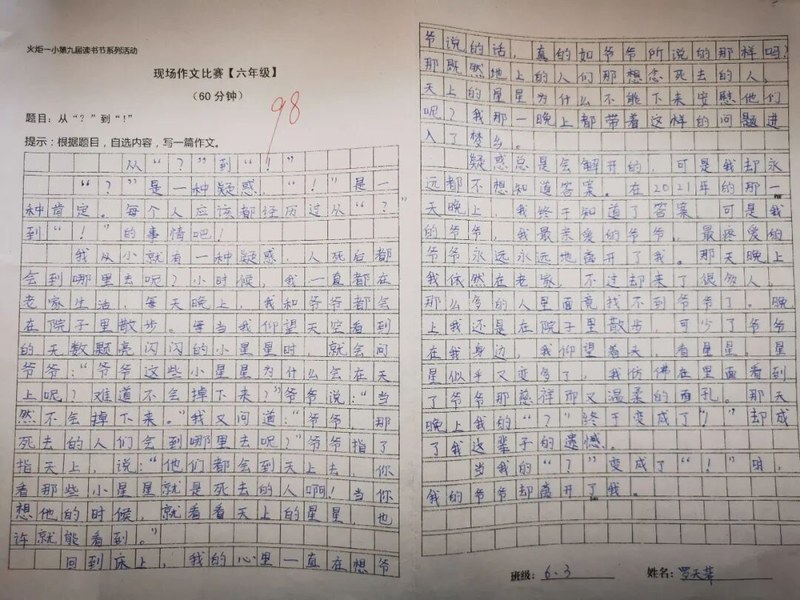 火炬一小第九届读书节系列活动
现场作文比赛【六年级】
（60分钟）
98
题目：从“？”到“！”
提示：根据题目，自选内容，写一篇作文。
从“？”到“！”
“？”是一种疑惑，“！”是一
种肯定。每个人应该都经历过从“？”
到“！”的事情吧！
我从小就有一种疑惑，人死后都
会到哪里去呢？小时候，我一直都在
老家生活，每天晚上，我和爷爷都会
在院子里散步。每当我仰望天空看到
的无数颗亮闪闪的小星星时，就会问
爷爷：“爷爷这些小星星为什么会在天
上呢？难道不会掉下来？”爷爷说：“当
然不会掉下来。”我又问道：“爷爷，那
死去的人们会到哪里去呢？”爷爷指了
指天上，说：“他们都会到天上去，你
看那些小星星就是死去的人啊！当你
想他的时候，就看看天上的星星，也
许就能看到。”
回到床上，我的心里一直在想爷
爷说的话，真的如爷爷所说的那样吗？
那既然地上的人们那想念死去的人，
天上的星星为什么不能下来安慰他们
呢？我那一晚上都带着这样的问题进
入了梦乡。
疑惑总是会解开的，可是我却永
远都不想知道答案。在2021年的那一
天晚上，我终于知道了答案，可是我
的爷爷，我最亲爱的爷爷，最疼爱的
爷爷永远永远地离开了我。那天晚上
我依然在老家，不过却来了很多人，
那么多的人里面竟找不到爷爷了。晚
上我还是在院子里散步，可少了爷爷
在我身边，我仰望着天，看星星，星
星似乎又变多了，我仿佛在里面看到
了爷爷那慈祥而又温柔的面孔。那天
晚上我的“？”终于变成了“！”却成
了我这辈子的遗憾。
当我的“？”变成了“！”时，
我的爷爷却离开了我。
班级：6.3
姓名：罗天苹